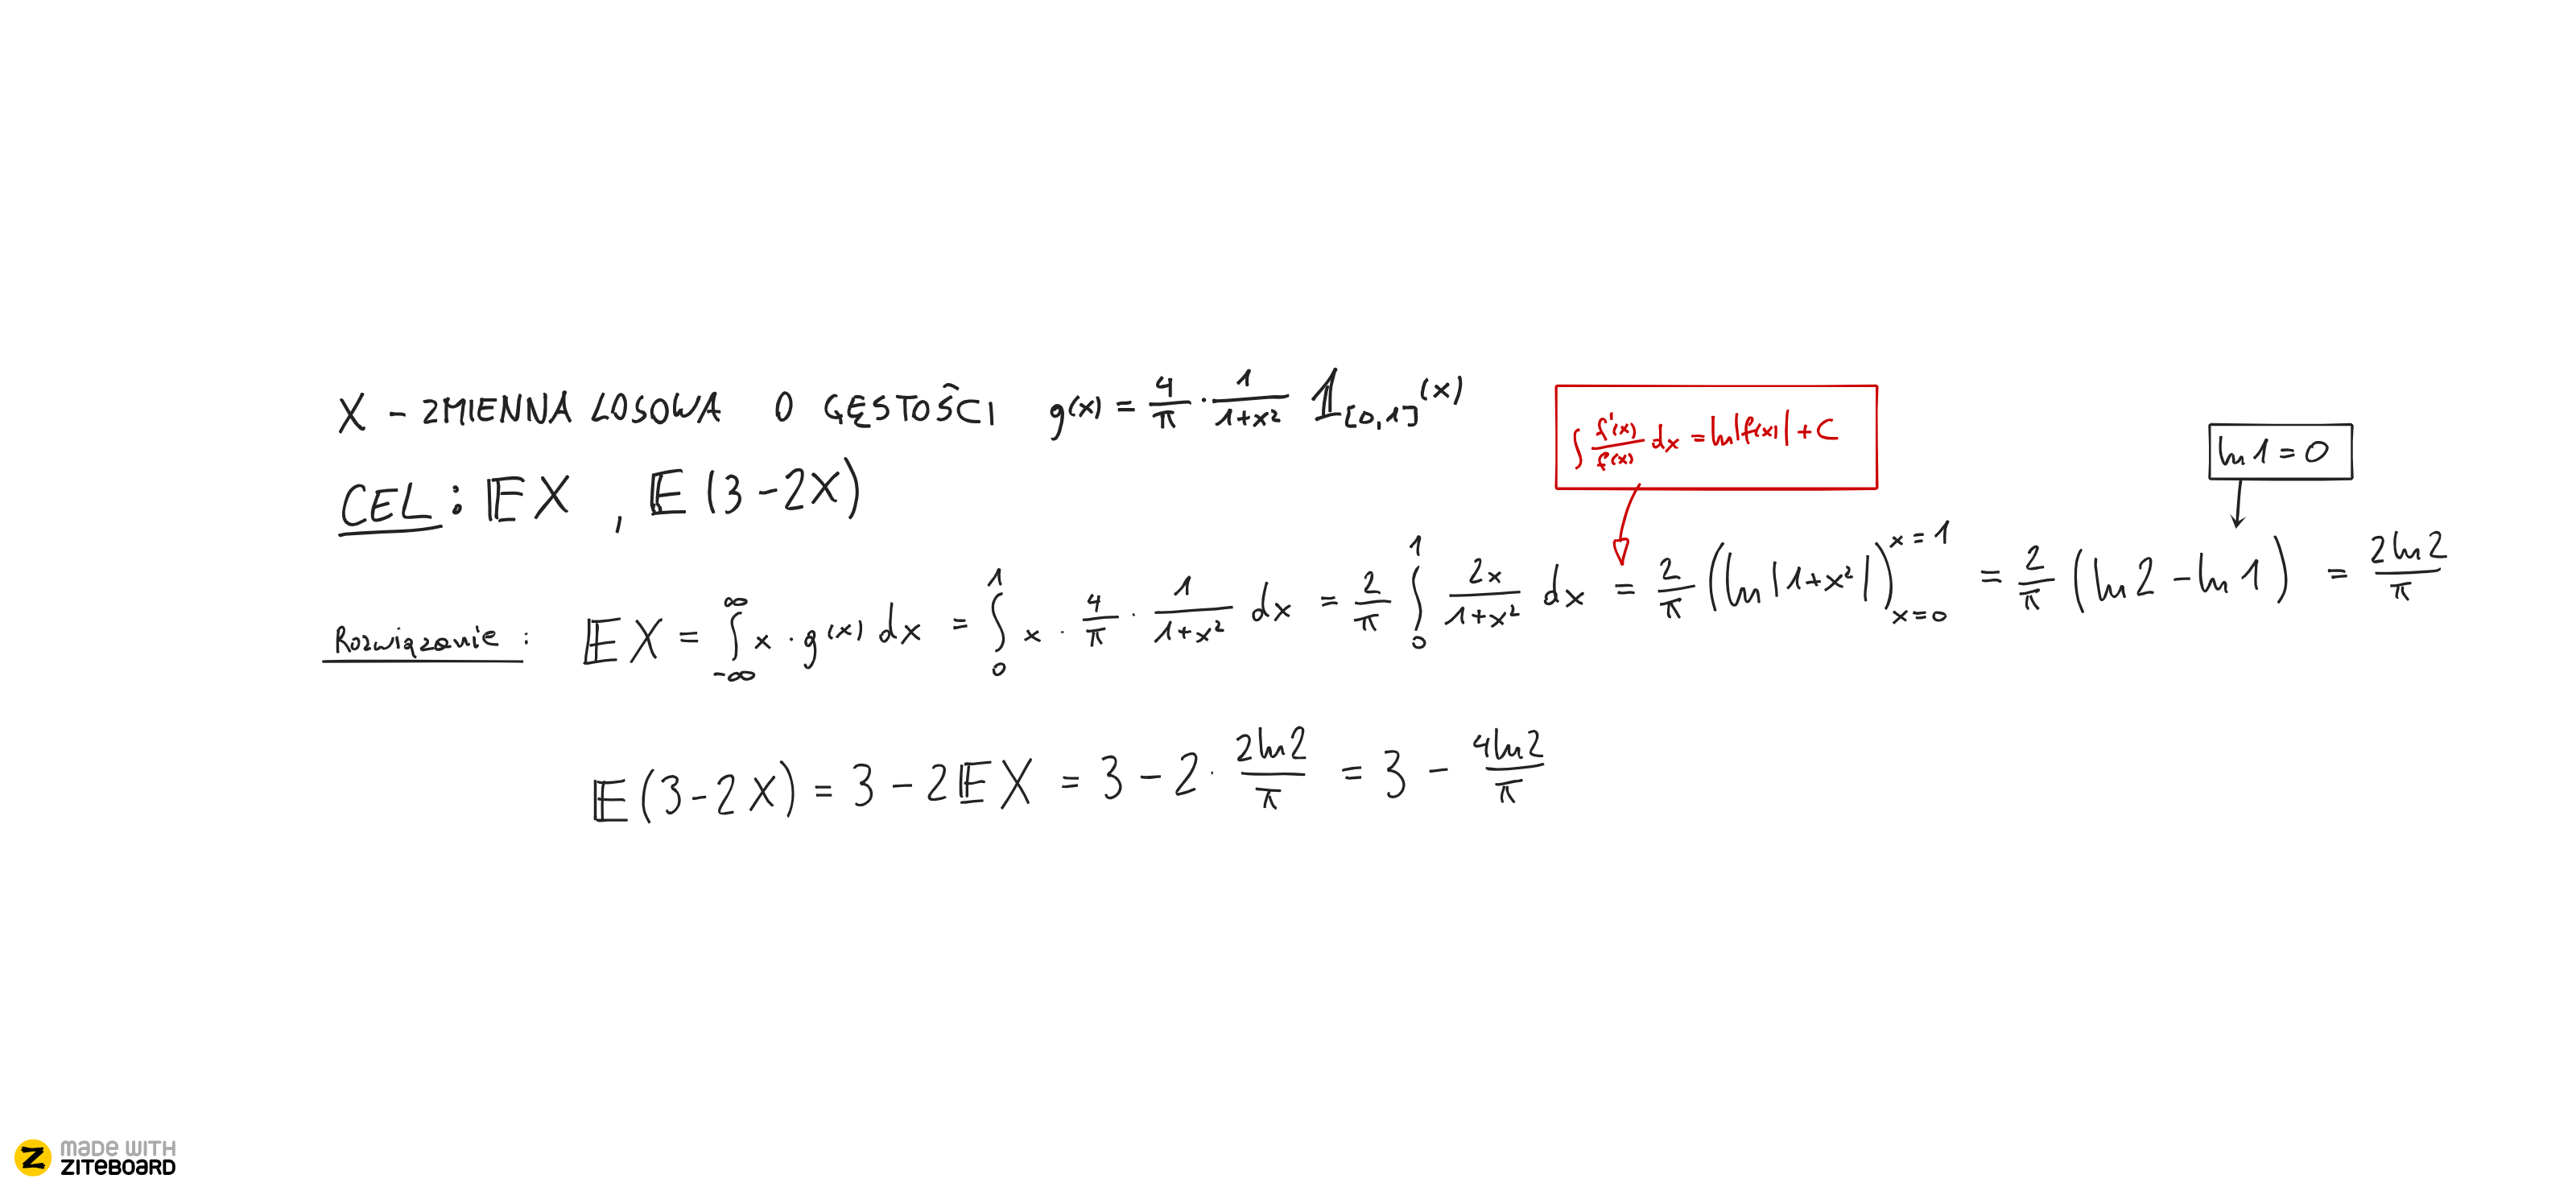 X - ZMIENNA LOSOWA O GĘSTOŚCI g(x) = 4/π · 1/(1+x²) 𝟙_[0,1](x)
CEL: 𝔼X , 𝔼(3-2X)
∫ f'(x)/f(x) dx = ln|f(x)| + C
ln 1 = 0
Rozwiązanie: 𝔼X = ∫_{-∞}^{∞} x · g(x) dx = ∫_0^1 x · 4/π · 1/(1+x²) dx = 2/π ∫_0^1 2x/(1+x²) dx = 2/π (ln|1+x²|)_{x=0}^{x=1} = 2/π (ln 2 - ln 1) = 2ln2/π
𝔼(3-2X) = 3 - 2𝔼X = 3 - 2 · 2ln2/π = 3 - 4ln2/π
MADE WITH
ZITEBOARD